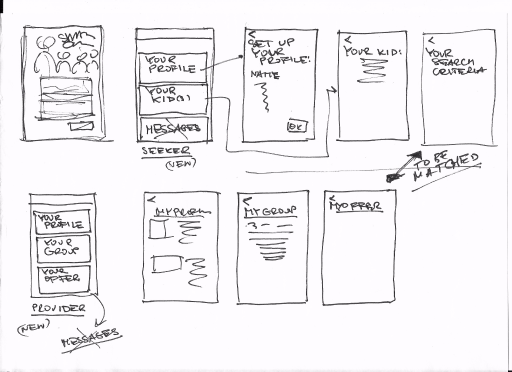 YOUR
PROFILE
YOUR
KID(S)
MESSAGES
SEEKER
(NEW)
<
SET UP
YOUR
PROFILE:
NAME
OK
<
YOUR KID:
<
YOUR
SEARCH
CRITERIA
TO BE
MATCHED
YOUR
PROFILE
YOUR
GROUP
YOUR
OFFER
PROVIDER
(NEW)
MESSAGES
<
<
MY GROUP
<
MY OFFER